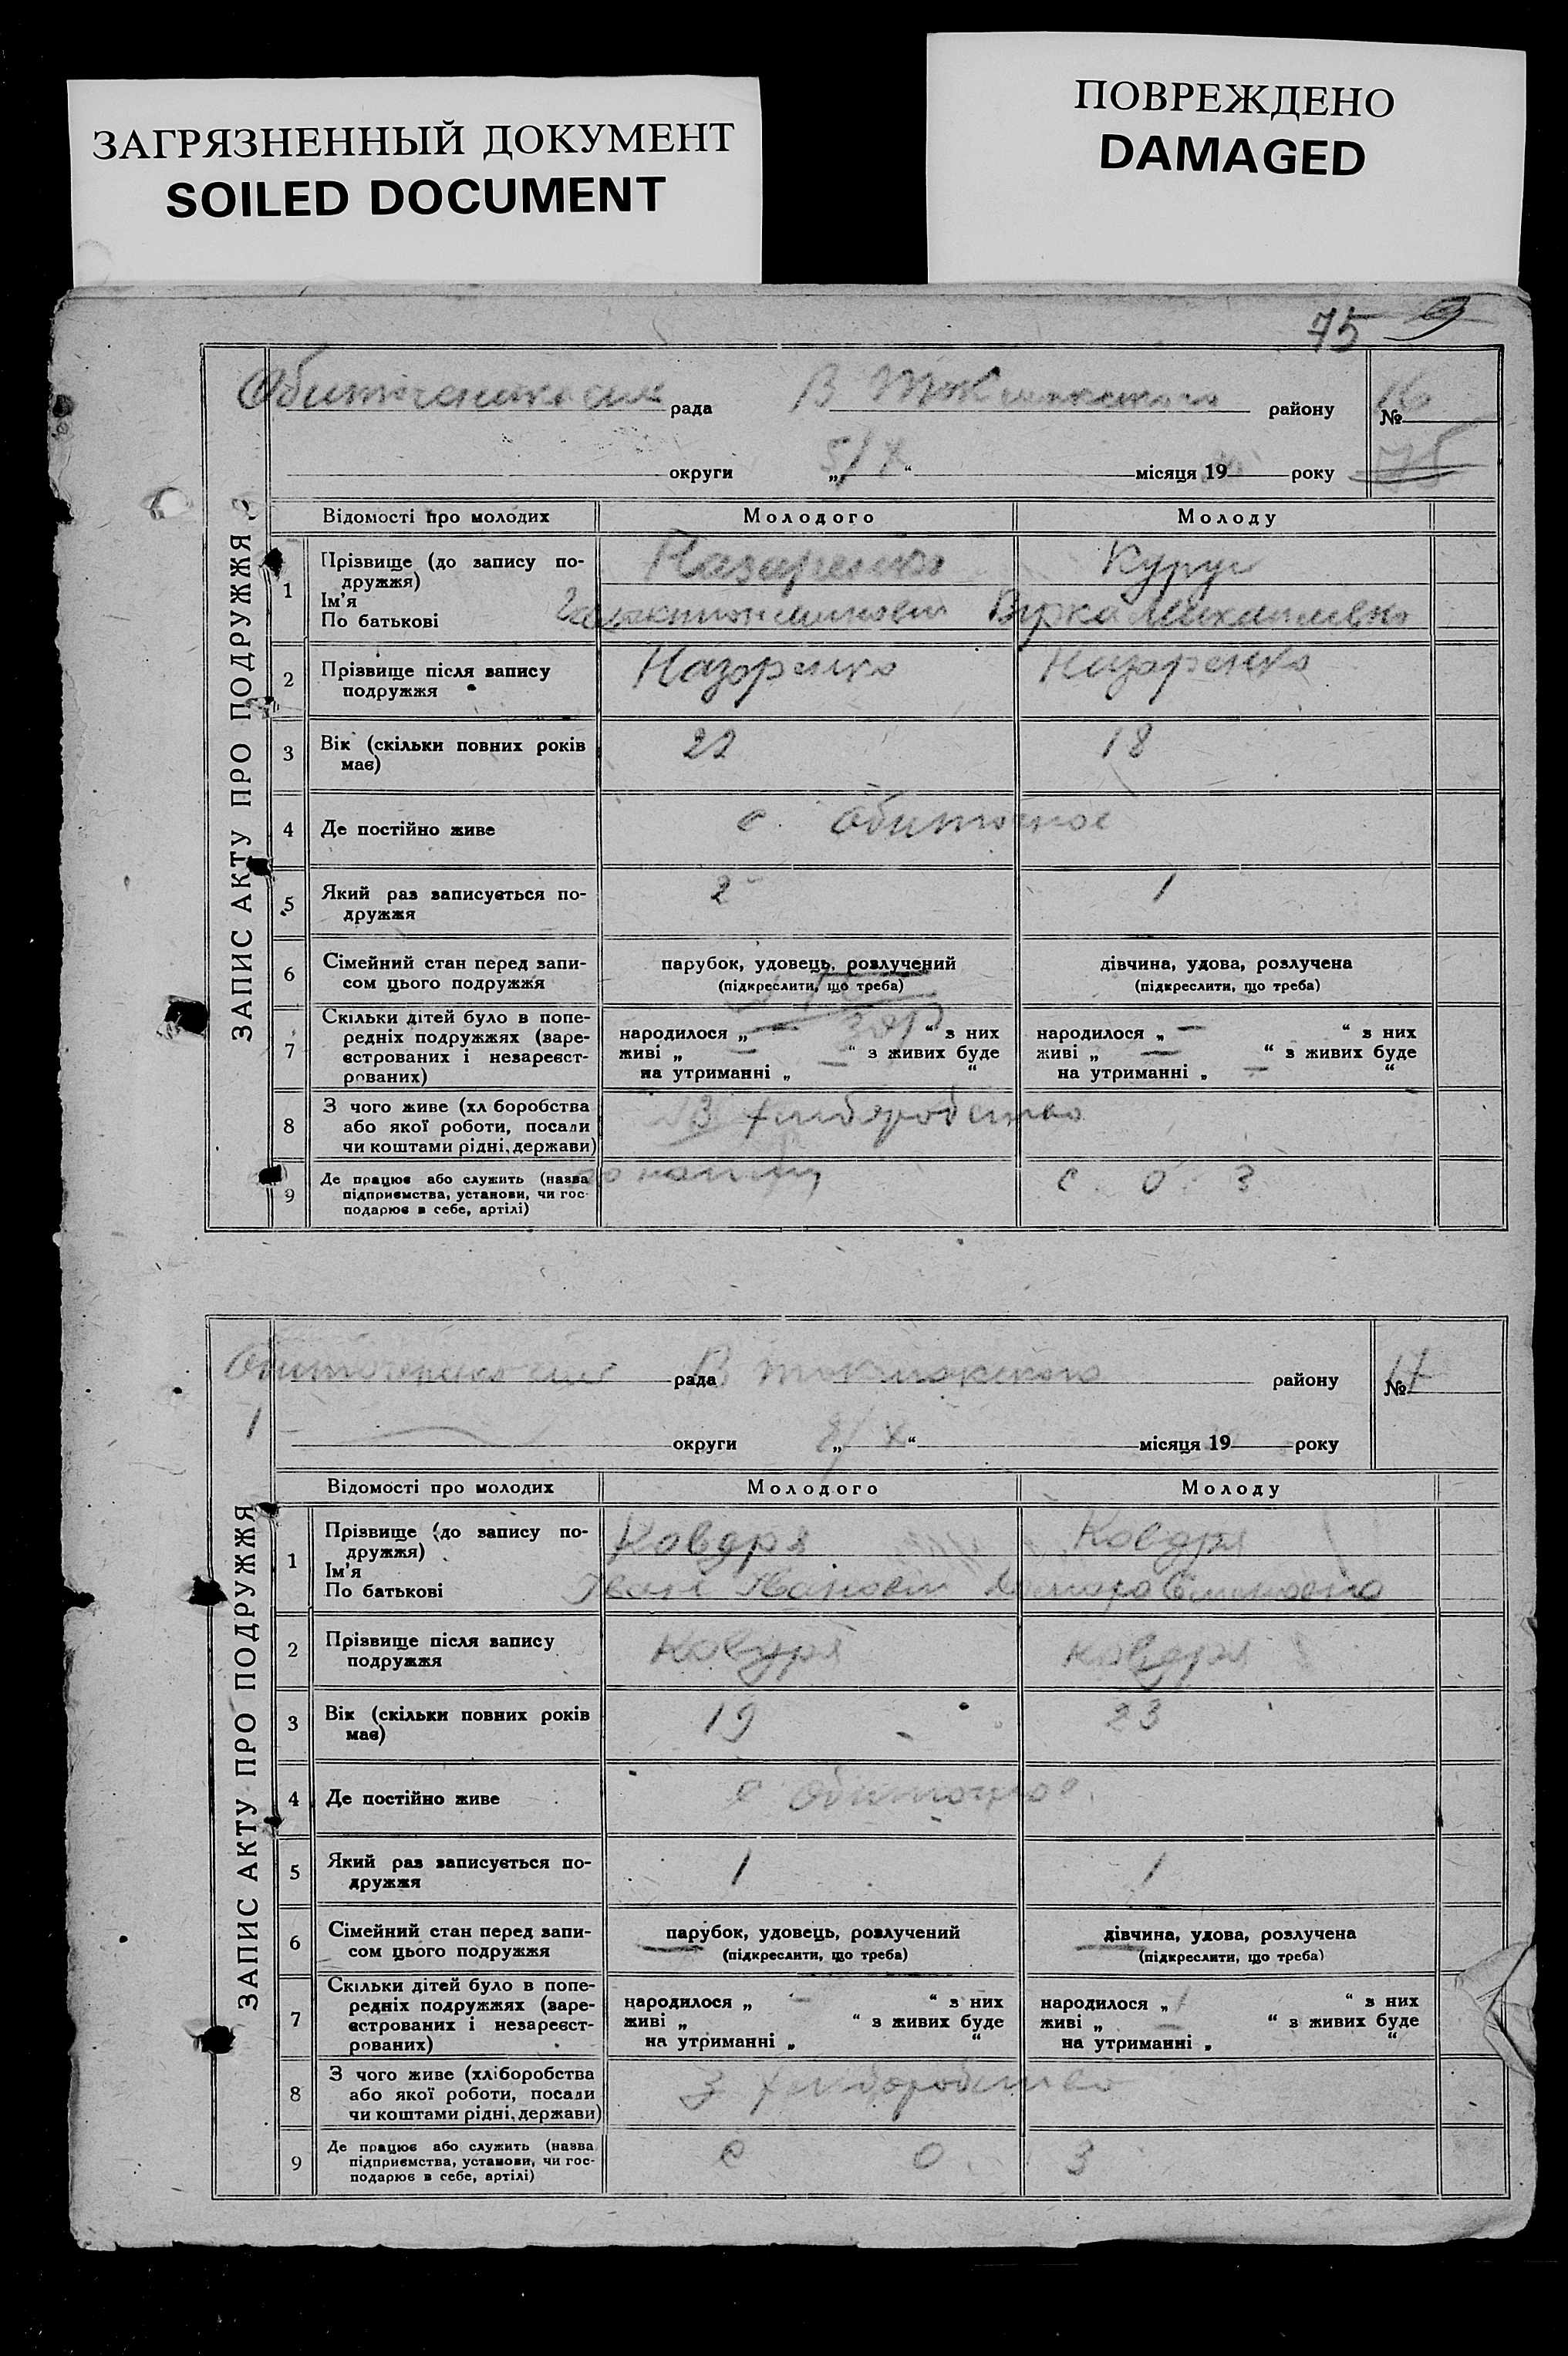 ЗАГРЯЗНЕННЫЙ ДОКУМЕНТ
SOILED DOCUMENT
ПОВРЕЖДЕНО
DAMAGED
75 9
ЗАПИС АКТУ ПРО ПОДРУЖЖЯ
рада В району № 16
округи „5/X“ місяця 19 року 75
Відомості про молодих Молодого Молоду
1 Прізвище (до запису по- Назаренко
дружжя)
Ім'я
По батькові Михайлівна
2 Прізвище після запису Назаренко Назаренко
подружжя
3 Вік (скільки повних років 22 18
має)
4 Де постійно живе с. Обиточное
5 Який раз записується по- 2 1
дружжя
6 Сімейний стан перед запи- парубок, удовець, розлучений дівчина, удова, розлучена
сом цього подружжя (підкреслити, що треба) (підкреслити, що треба)
7 Скільки дітей було в попе-
редніх подружжях (заре- народилося „ — “ з них народилося „ — “ з них
єстрованих і незареєст- живі „ — “ з живих буде живі „ — “ з живих буде
рованих) на утриманні „ — “ на утриманні „ — “
8 З чого живе (хл боробства
або якої роботи, посади
чи коштами рідні, держави)
9 Де працює або служить (назва с. о. з
підприємства, установи, чи гос-
подарює в себе, артілі)
ЗАПИС АКТУ ПРО ПОДРУЖЖЯ
рада В району № 17
округи „8/X“ місяця 19 року
Відомості про молодих Молодого Молоду
1 Прізвище (до запису по- Ковдря Ковдря
дружжя)
Ім'я
По батькові Іван Іванович
2 Прізвище після запису Ковдря Ковдря
подружжя
3 Вік (скільки повних років 19 23
має)
4 Де постійно живе с Обиточное
5 Який раз записується по- 1 1
дружжя
6 Сімейний стан перед запи- парубок, удовець, розлучений дівчина, удова, розлучена
сом цього подружжя (підкреслити, що треба) (підкреслити, що треба)
7 Скільки дітей було в попе-
редніх подружжях (заре- народилося „ — “ з них народилося „ “ з них
єстрованих і незареєст- живі „ “ з живих буде живі „ — “ з живих буде
рованих) на утриманні „ “ на утриманні „ “
8 З чого живе (хліборобства
або якої роботи, посади
чи коштами рідні, держави)
9 Де працює або служить (назва с о. з
підприємства, установи, чи гос-
подарює в себе, артілі)